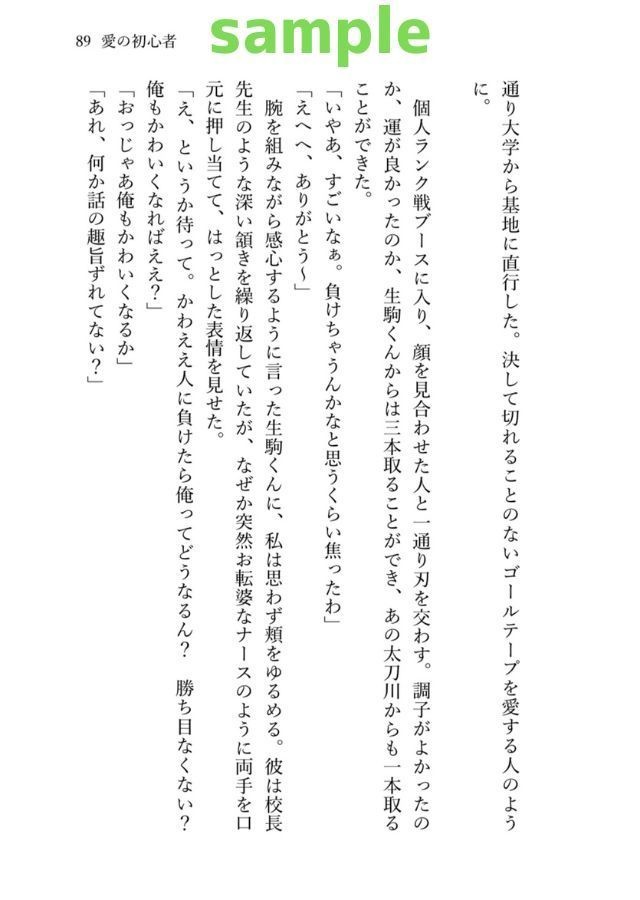 sample
89 愛の初心者
通り大学から基地に直行した。決して切れることのないゴールテープを愛する人のよう
に。
個人ランク戦ブースに入り、顔を見合わせた人と一通り刃を交わす。調子がよかったの
か、運が良かったのか、生駒くんからは三本取ることができ、あの太刀川からも一本取る
ことができた。
「いやあ、すごいなぁ。負けちゃうんかなと思うくらい焦ったわ」
「えへへ、ありがとう〜」
腕を組みながら感心するように言った生駒くんに、私は思わず頬をゆるめる。彼は校長
先生のような深い頷きを繰り返していたが、なぜか突然お転婆なナースのように両手を口
元に押し当てて、はっとした表情を見せた。
「え、というか待って。かわええ人に負けたら俺ってどうなるん？　勝ち目なくない？
俺もかわいくなればええ？」
「おっじゃあ俺もかわいくなるか」
「あれ、何か話の趣旨ずれてない？」